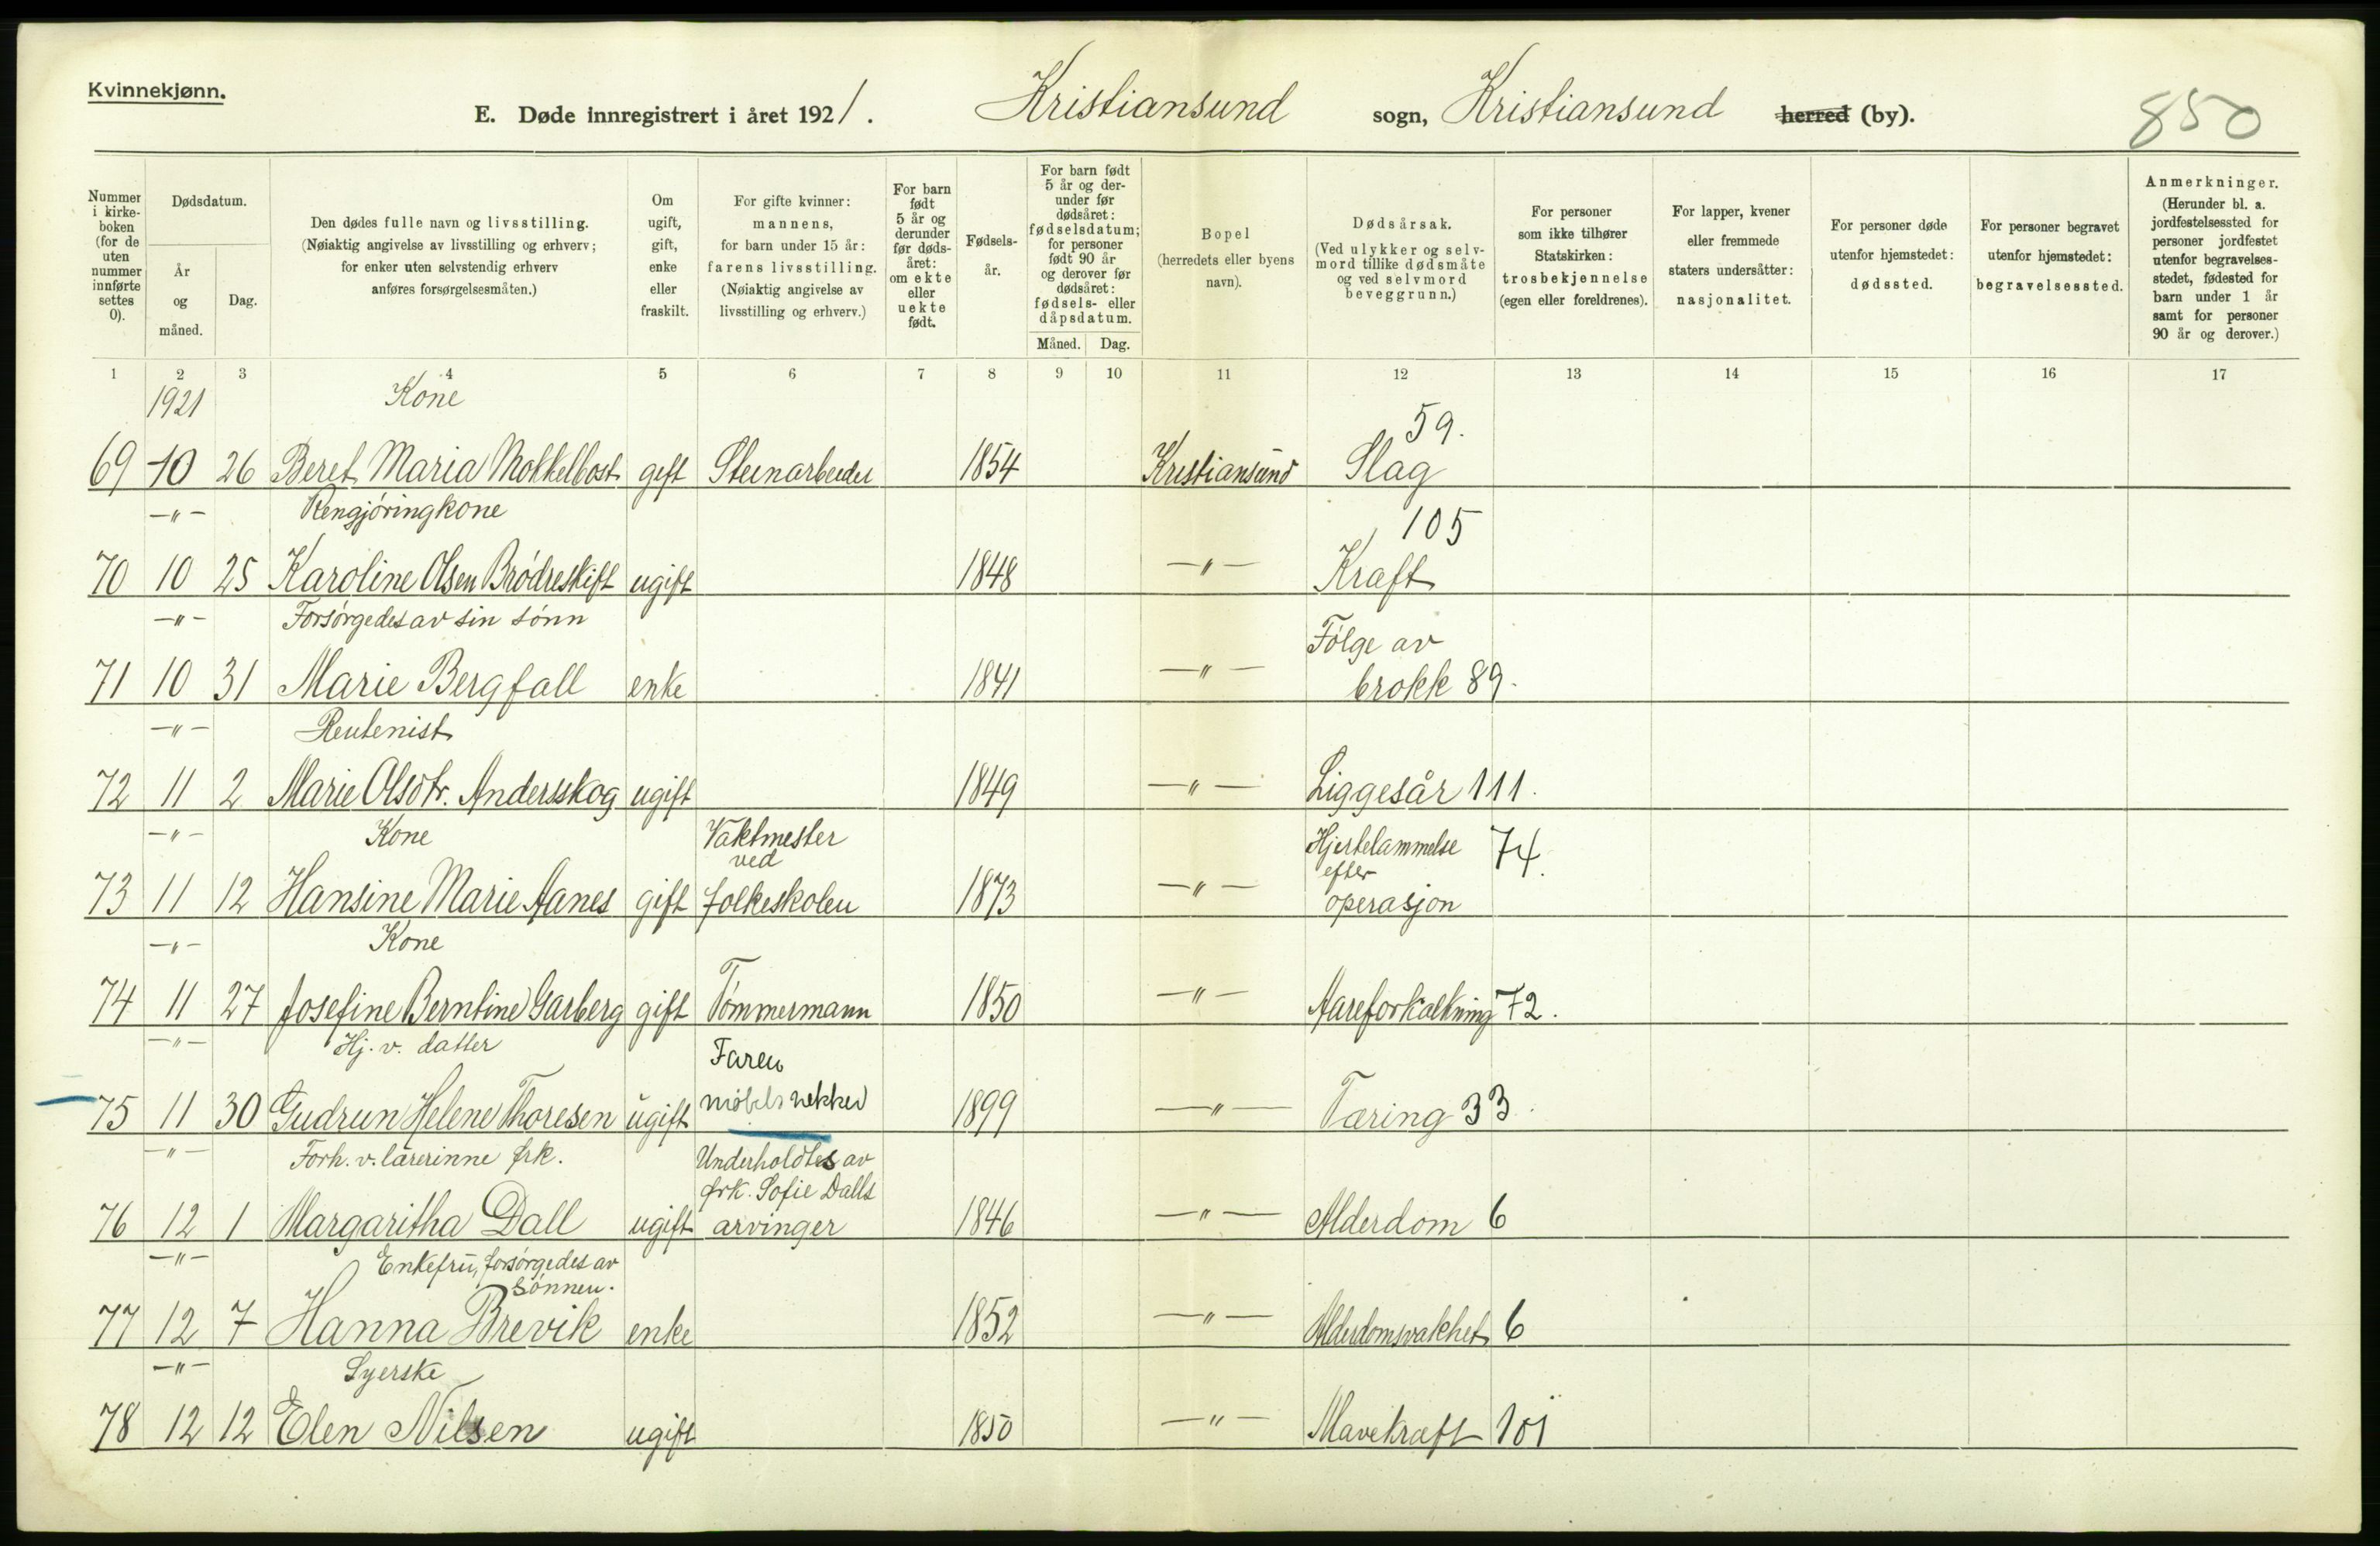 Kvinnekjønn.
E. Døde innregistrert i året 1921. Kristiansund sogn, Kristiansund herred (by). 850
Nummer i kirkeboken (for de uten nummer innførte settes 0).
Dødsdatum.
År og måned.
Dag.
Den dødes fulle navn og livsstilling. (Nøiaktig angivelse av livsstilling og erhverv; for enker uten selvstendig erhverv anføres forsørgelsesmåten.)
Om ugift, gift, enke eller fraskilt.
For gifte kvinner: mannens, for barn under 15 år: farens livsstilling. (Nøiaktig angivelse av livsstilling og erhverv.)
For barn født 5 år og derunder før dødsåret: om ekte eller uekte født.
Fødselsår.
For barn født 5 år og derunder før dødsåret: fødselsdatum; for personer født 90 år og derover før dødsåret: fødsels- eller dåpsdatum.
Måned. Dag.
Bopel (herredets eller byens navn).
Dødsårsak. (Ved ulykker og selvmord tillike dødsmåte og ved selvmord beveggrunn.)
For personer som ikke tilhører Statskirken: trosbekjennelse (egen eller foreldrenes).
For lapper, kvener eller fremmede staters undersåtter: nasjonalitet.
For personer døde utenfor hjemstedet: dødssted.
For personer begravet utenfor hjemstedet: begravelsessted.
Anmerkninger. (Herunder bl. a. jordfestelsessted for personer jordfestet utenfor begravelsesstedet, fødested for barn under 1 år samt for personer 90 år og derover.)
1 2 3 4 5 6 7 8 9 10 11 12 13 14 15 16 17
1921 Kone 59.
69 10 26 Beret Maria Mokkelbost gift Steinarbeider 1854 Kristiansund Slag
—"— Rengjøringkone 105
70 10 25 Karoline Olsen Brødreskift ugift 1848 —"— Kræft
—"— Forsørgedes av sin sønn Følge av
71 10 31 Marie Bergfall enke 1841 —"— brokk 89.
—"— Rentenist
72 11 2 Marie Olsdtr. Andersskog ugift 1849 —"— Liggesår 111.
—"— Kone Vaktmester ved Hjertelammelse 74. efter
73 11 12 Hansine Marie Aanes gift folkeskolen 1873 —"— operasjon
—"— Kone
74 11 27 Josefine Berntine Garberg gift Tømmermann 1850 —"— Aareforkalkning 72.
—"— Hj. v. datter Faren
75 11 30 Gudrun Helene Thoresen ugift møbelsnekker 1899 —"— Tæring 33.
—"— Forh. v. lærerinne frk. Underholdtes av frk. Sofie Dalls
76 12 1 Margaritha Dall ugift arvinger 1846 —"— Alderdom 6
—"— Enkefru, forsørgedes av sønnen.
77 12 7 Hanna Brevik enke 1852 —"— Alderdomsvakhet 6
—"— Syerske
78 12 12 Elen Nilsen ugift 1850 —"— Mavekræft 101